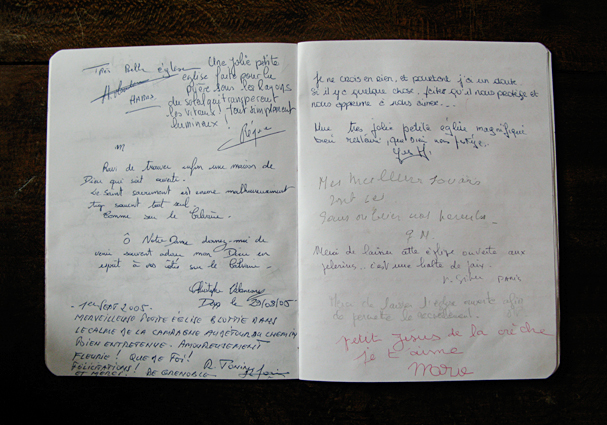 Très Belle église
Une jolie petite
église faite pour la
prière sous les rayons
du soleil qui transpercent
les vitraux ! tout simplement
lumineux !
Régine
de trouver enfin une maison de
Dieu qui soit ouverte.
Le Saint sacrement est encore malheureusement
trop souvent tout seul.
Comme sur le Calvaire.
Ô Notre Dame donnez-moi de
venir souvent adorer mon Dieu en
esprit à ses côtés sur le Calvaire.
Christophe
le 29/08/05
- 1er SEPT 2005.
MERVEILLEUSE PETITE ÉGLISE BLOTTIE DANS
LE CALME DE LA CAMPAGNE AU DETOUR DU CHEMIN
BIEN ENTRETENUE. AMOUREUSEMENT
FLEURIE ! QUE DE FOI !
FÉLICITATIONS !
ET MERCI. DE GRENOBLE
Je ne crois en rien, et pourtant j'ai un doute
Si il y a quelque chose, faites qu'il nous protège et
nous apprenne à nous aimer...
Une très jolie petite église magnifique
bien restauré,
Mes meilleurs
sont
Sans oublier
Merci de laisser cette église ouverte aux
pèlerins.. c'est une halte de paix.
PARIS
Merci de laisser l'église ouverte afin
de permettre le recueillement.
Petit Jésus de la crèche
je t'aime
Marie